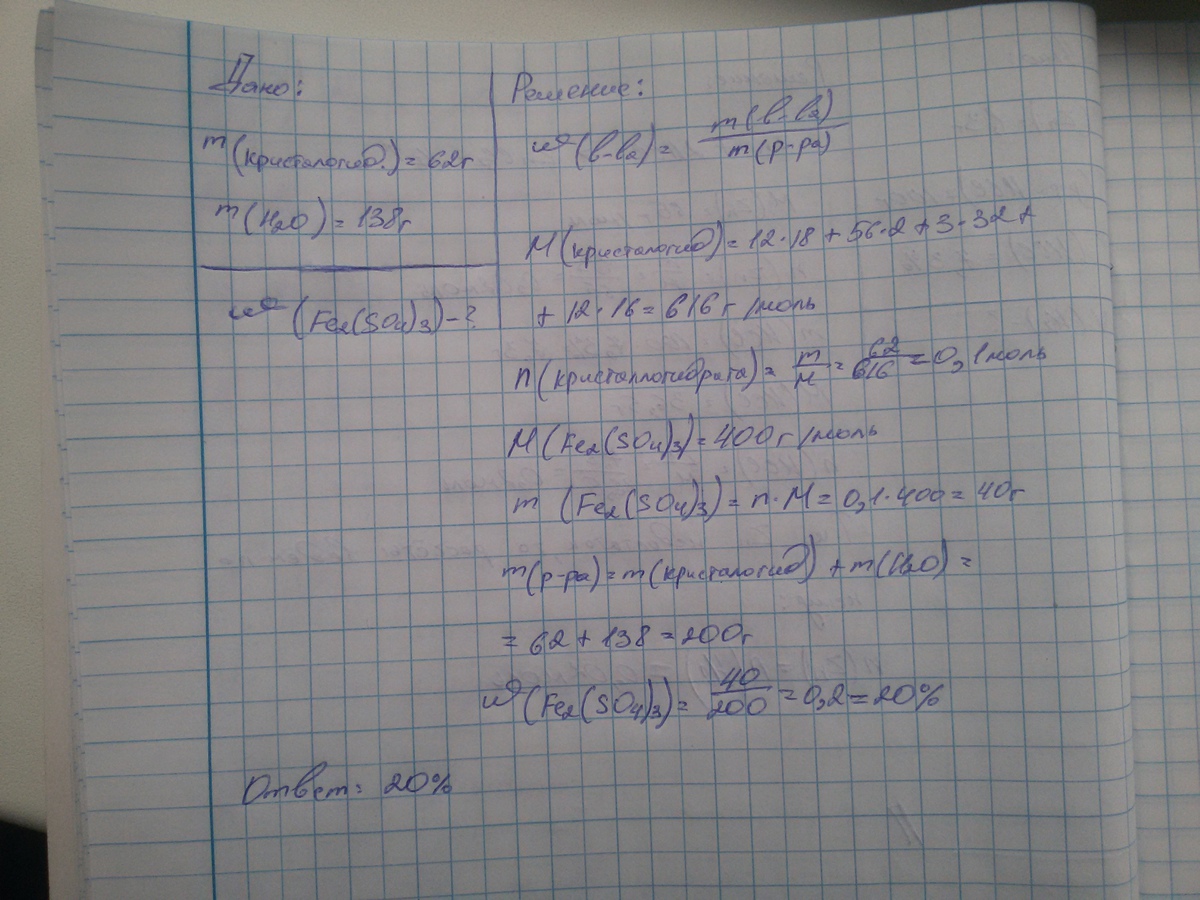 Дано:
m(кристалогид.) = 62г
m(H2O) = 138г
ω(Fe2(SO4)3) - ?
Решение:
ω(в-ва) = m(в-ва) / m(р-ра)
M(кристалогид) = 12·18 + 56·2 + 3·32 +
+ 12·16 = 616 г/моль
n(кристаллогидрата) = m/M = 62/616 = 0,1 моль
M(Fe2(SO4)3) = 400 г/моль
m (Fe2(SO4)3) = n·M = 0,1·400 = 40г
m(р-ра) = m(кристалогид) + m(H2O) =
= 62 + 138 = 200г
ω(Fe2(SO4)3) = 40/200 = 0,2 = 20%
Ответ: 20%